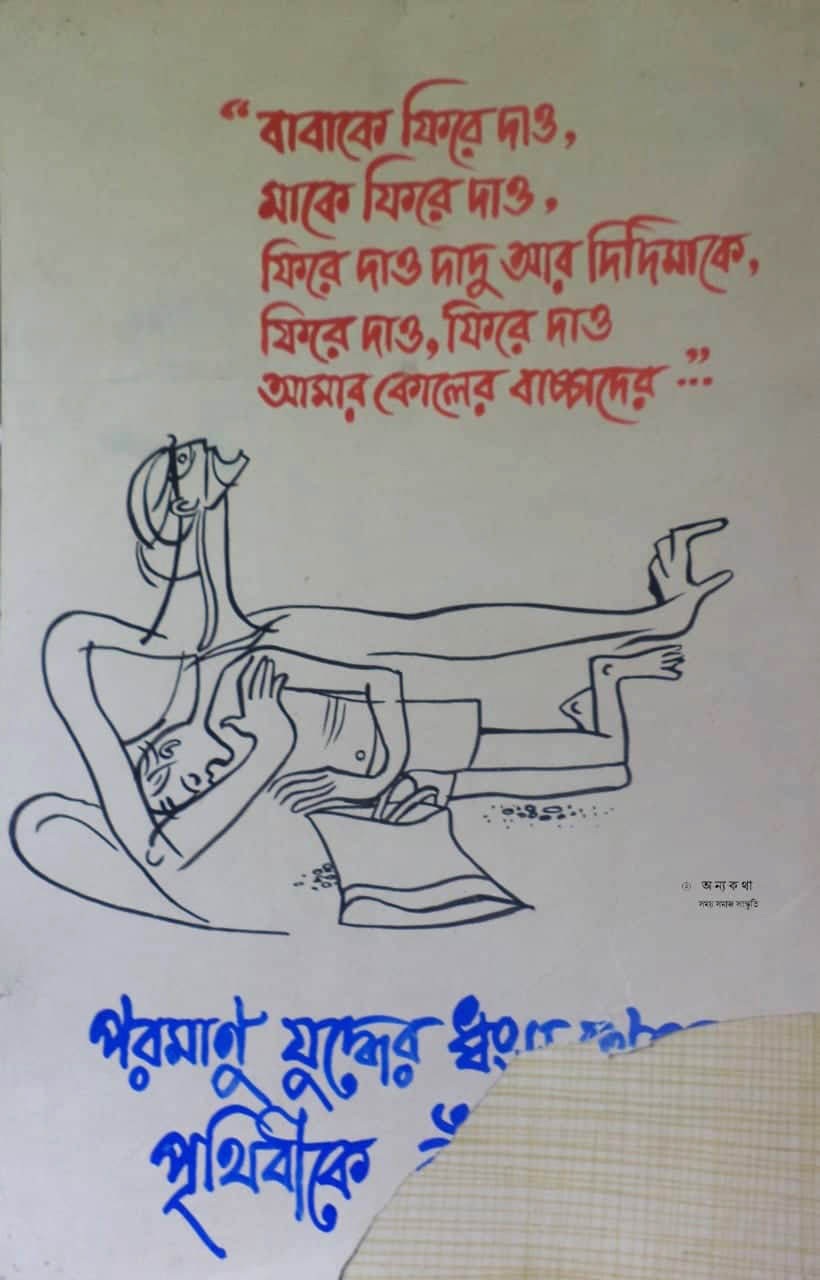 “বাবাকে ফিরে দাও,
মাকে ফিরে দাও,
ফিরে দাও দাদু আর দিদিমাকে,
ফিরে দাও, ফিরে দাও
আমার কোলের বাচ্চাদের ...”
অন্যকথা
সময় সমাজ সংস্কৃতি
পরমাণু যুদ্ধের
পৃথিবীকে